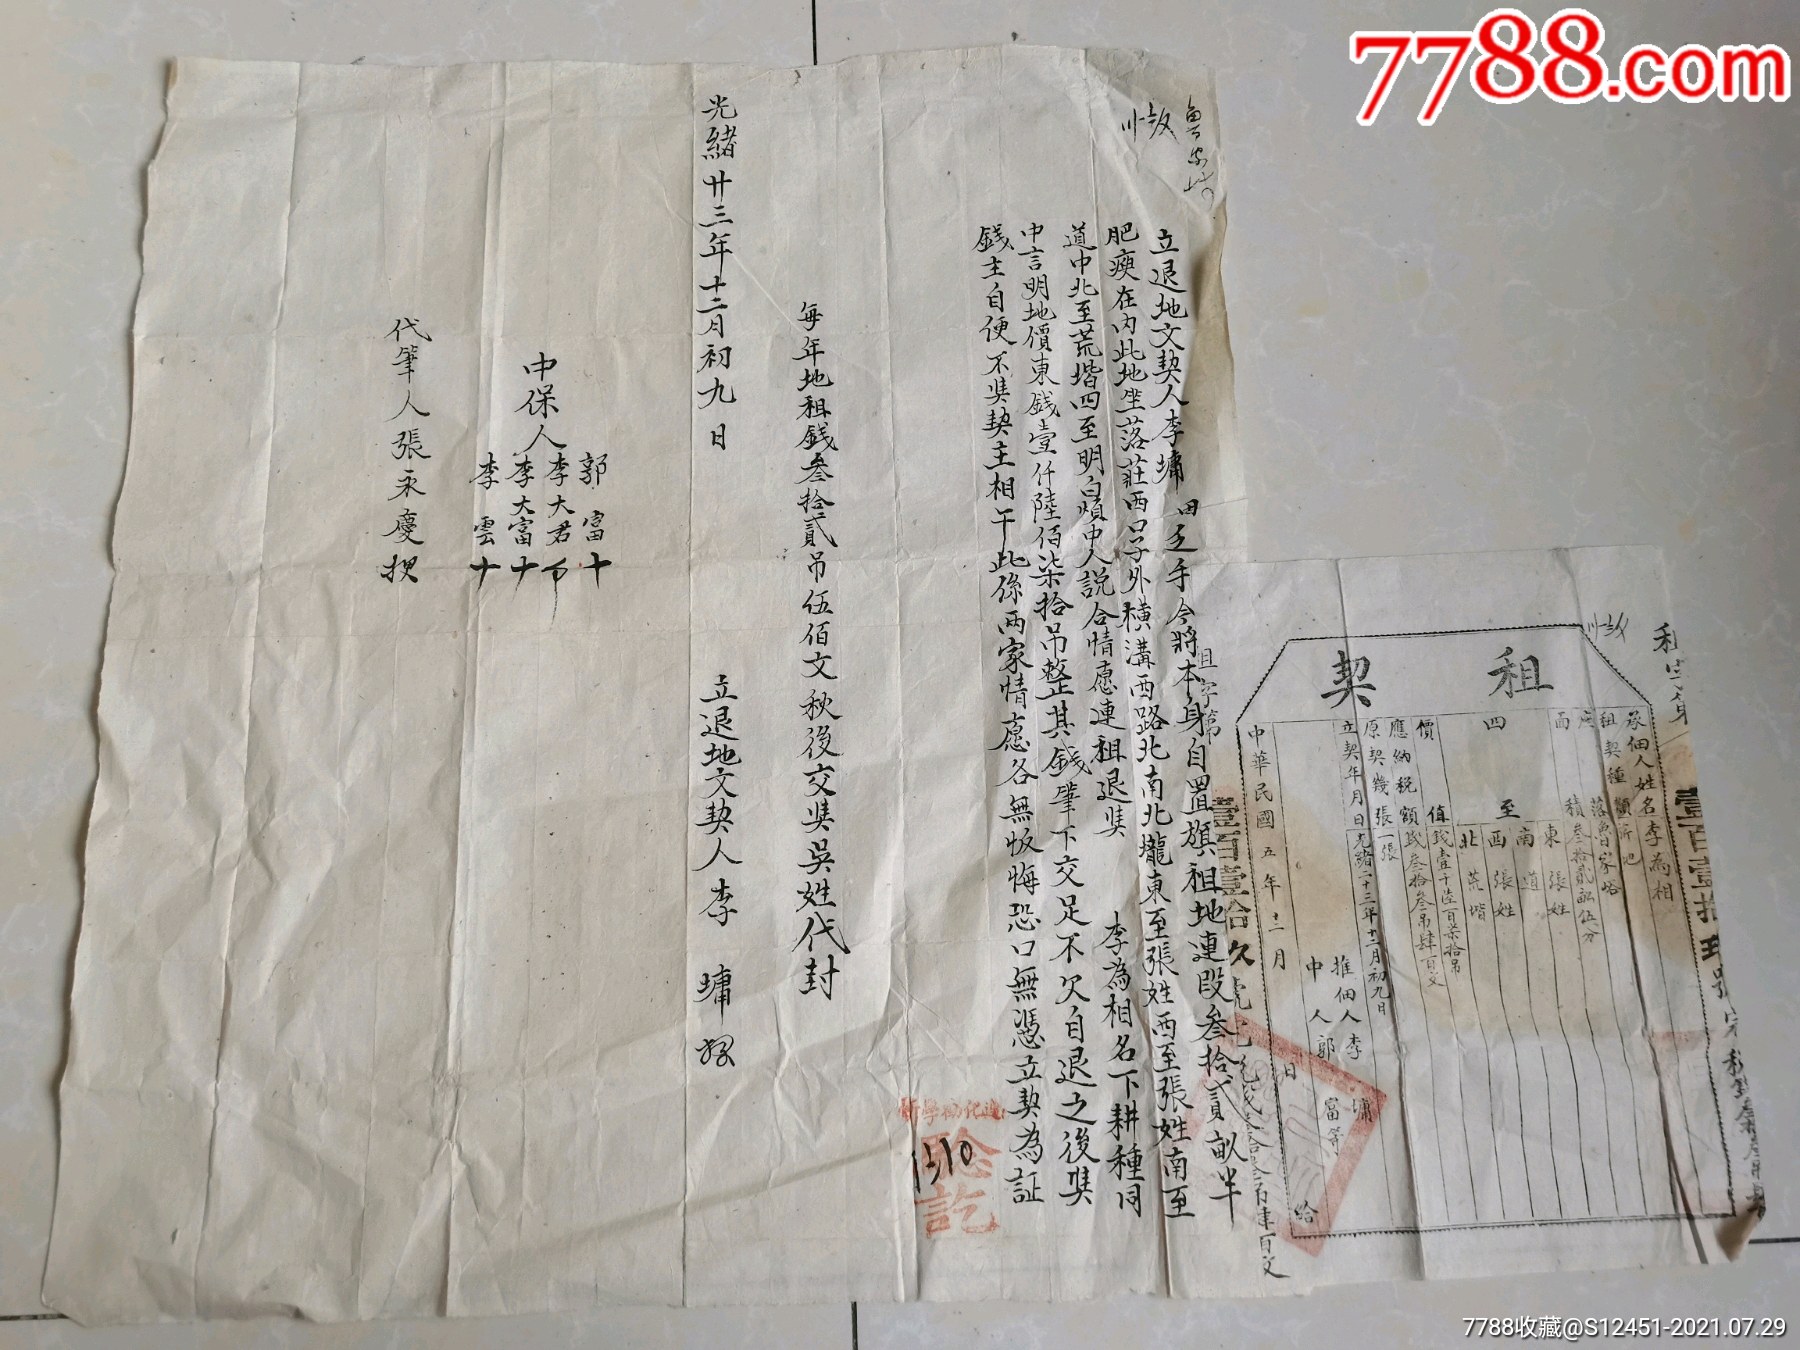 7788.com
立退地文契人李墉因乏手今將本身自置旗租地連段叁拾貳畝半
肥瘐在内此地坐落莊西口子外橫溝西路北南北壠東至張姓西至張姓南至
道中北至荒堦四至明白煩中人説合情愿連租退與李為相名下耕種同
中言明地價東錢壹仟陸佰柒拾吊整其錢筆下交足不欠自退之後與
錢主自便不與契主相干此係兩家情愿各無返悔恐口無憑立契為証
每年地租錢叁拾貳吊伍佰文秋後交與吳姓代封
光緒廿三年十二月初九日
立退地文契人李墉
中保人
郭富十
李大君
李大富十
李雲十
代筆人張永慶押
驗訖
1310
租契
承佃人姓名李為相
租契種類
落魯家峪
面積叁拾貳畝伍分
四至
東張姓
南道
西張姓
北荒堦
價值錢壹千陸百柒拾吊
應納稅額錢叁拾叁吊肆百文
原契幾張一張
立契年月日光緒二十三年十二月初九日
推佃人李墉
中人郭富等
中華民國五年十二月日給
租字第
壹百壹拾玖號
7788收藏@S12451-2021.07.29